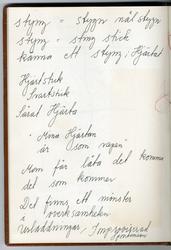 styng = stygn nål stygn
styng = sting stick
känna ett styng i Hjärtat
Hjärtstick
Svartstick
Sårat Hjärta
· Mina Hjärtan
är som vapen
Man får låta det komma
det som kommer
Det finns ett mönster
i överksamheten
i urladdningar, Improviserad